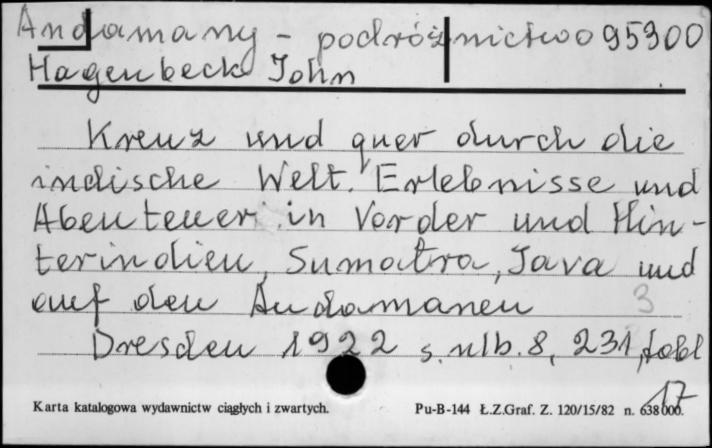 Andamany - podróżnictwo 095300
Hagenbeck John
Kreuz und quer durch die
indische Welt. Erlebnisse und
Abenteuer in Vorder und Hin-
terindien, Sumatra, Java und
auf den Andamanen
3
Dresden 1922 s. nlb. 8, 231, tabl
17
Karta katalogowa wydawnictw ciągłych i zwartych. Pu-B-144 Ł.Z.Graf. Z. 120/15/82 n. 638 000.